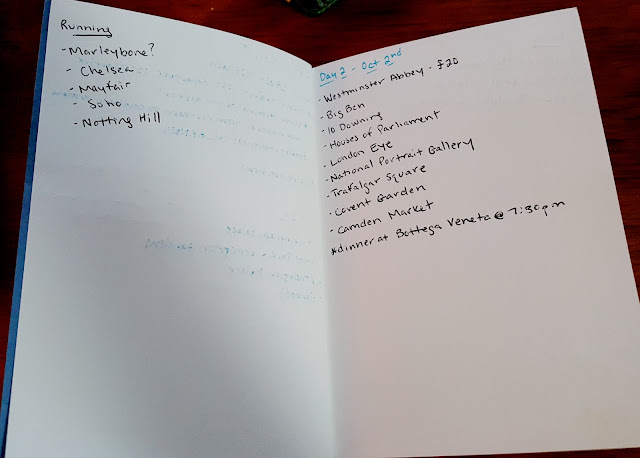 Running
-Marleybone?
- Chelsea
- Mayfair
- Soho
- Notting Hill
Day 2 - Oct 2nd
-Westminster Abbey - £20
-Big Ben
-10 Downing
-Houses of Parliament
-London Eye
-National Portrait Gallery
-Trafalgar Square
-Covent Garden
-Camden Market
*dinner at Bottega Veneta @ 7:30pm